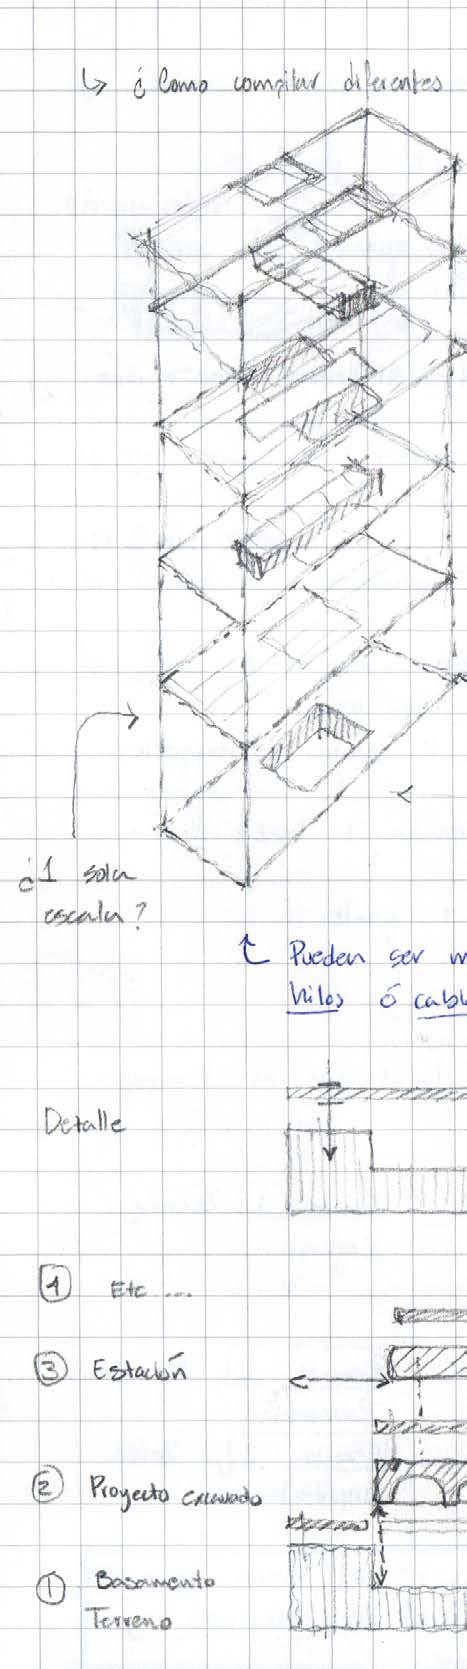 ↳ ¿Como compilar diferentes
¿1 sola
escala?
Pueden ser m
hilos ó cabl
Detalle
4 Etc.....
3 Estación
2 Proyecto excavado
1 Basamento
Terreno